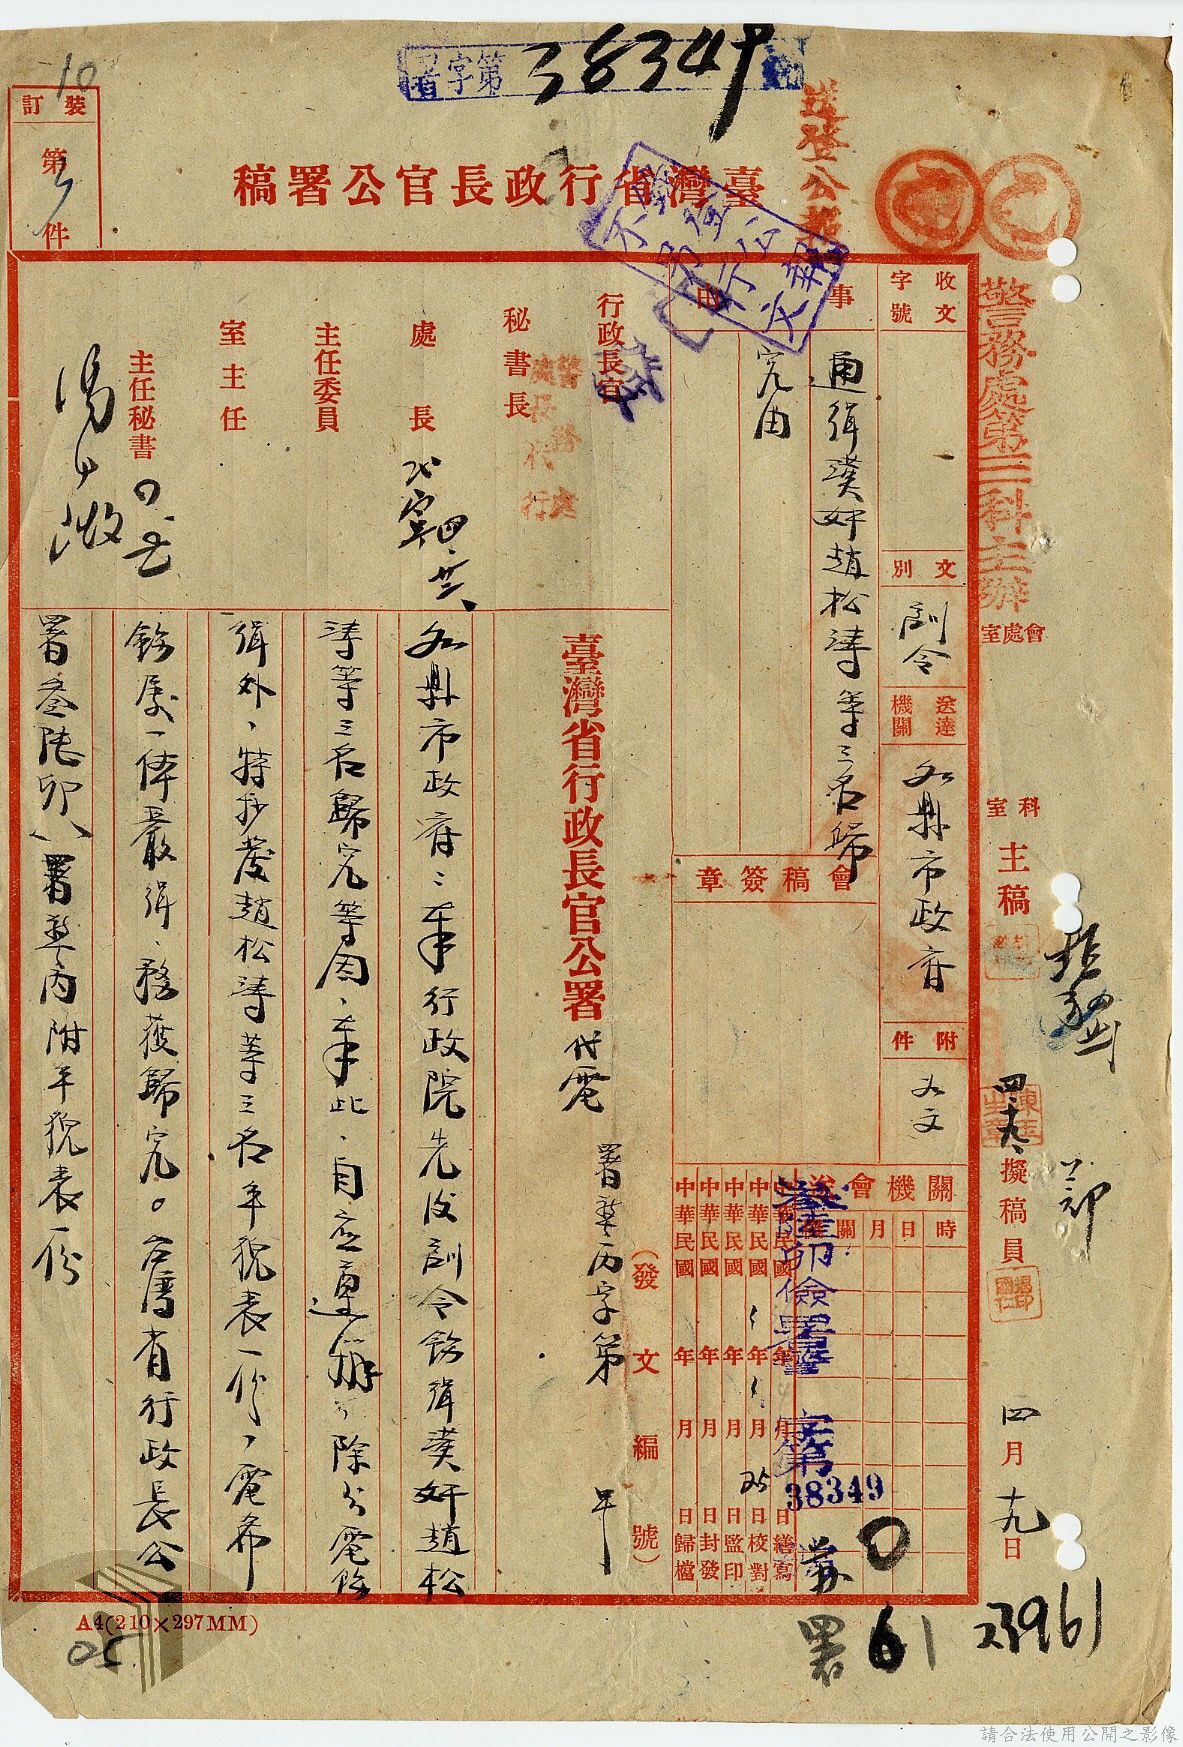 署字第38349號
10
裝訂
第3件
送登公報
登公報
不另行文
臺灣省行政長官公署稿
警務處第三科主辦
收文
字號
文別
訓令
送達機關
各縣市政府
附件
如文
事由
通緝漢奸趙松濤等三名歸
究由
會稿簽章
會處室
科室
主稿
擬稿員
四月十九日
關機會
關月日時
中華民國年月日繕寫
中華民國年月25日校對
中華民國年月日監印
中華民國年月日封發
中華民國年月日歸檔
字第
38349
行政長官
發
秘書長
警務處
處長代行
處長
主任委員
室主任
主任秘書
(發文編號)
臺灣省行政長官公署代電
各縣市政府:奉行政院先後訓令飭緝漢奸趙松
濤等三名歸究等因,奉此,自應遵辦,除分電飭
緝外,特抄發趙松濤等三名年貌表一份,電希
飭屬一體嚴緝,務獲歸究。台灣省行政長官公
署叁陸卯 署警丙附年貌表一份
A4(210×297MM)
05
署
61
23961
請合法使用公開之影像